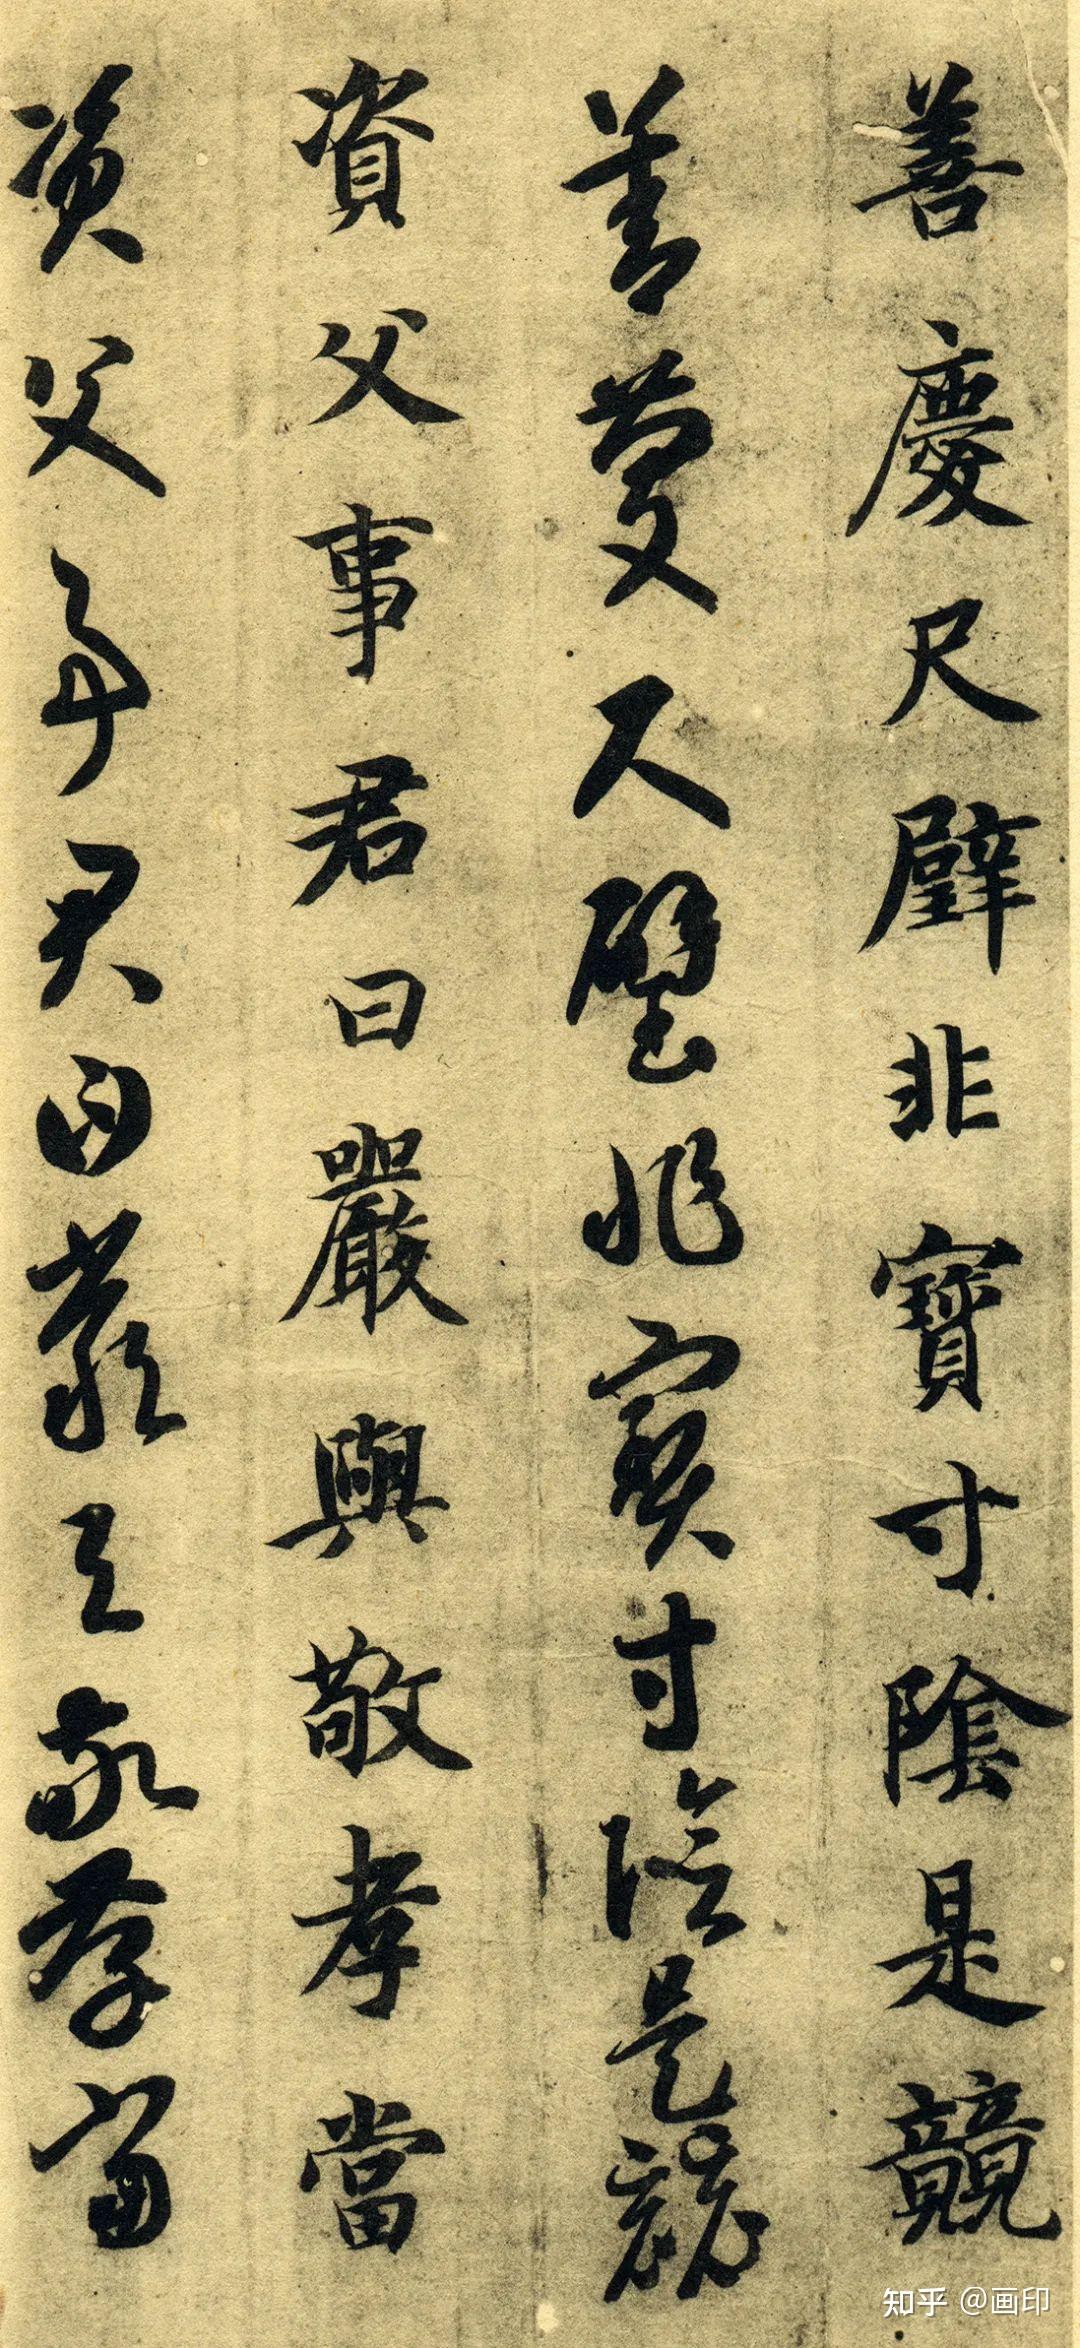 善慶尺璧非寶寸陰是競
善慶尺璧非寶寸陰是競
資父事君曰嚴與敬孝當
資父事君曰嚴与敬孝當
知乎 @画印